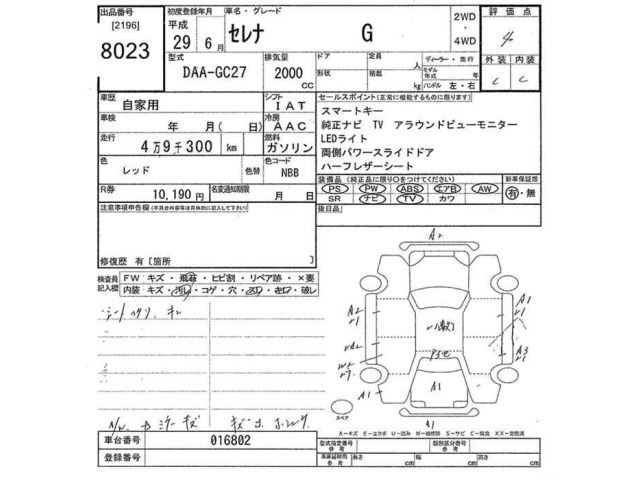 出品番号
[2196]
8023
初度登録年月
平成
29年6月
車名・グレード
セレナ G
2WD
・
4WD
評価点
4
外装 内装
C C
型式
DAA-GC27
排気量
2000
CC
ドア
形状
定員
人
積載
kg
ディーラー・並行
モデル年式 年
ハンドル 左・右
車歴
自家用
シフト
IAT
車検
年 月(日)
冷房
AAC
走行
4万9千300 km
燃料
ガソリン
色
レッド
色替
色コード
NBB
R券
10,190円
名変通知期限
月 日
セールスポイント(正常に機能するものに限ります)
スマートキー
純正ナビ TV アラウンドビューモニター
LEDライト
両側パワースライドドア
ハーフレザーシート
装備品(純正品に限り○をつけてください)
PS PW ABS エアB AW
SR ナビ TV カワ
新車保証書
有・無
後日品
注意事項申告欄(不具合内容等は具体的に記入して下さい)
修復歴 有〔箇所 〕
検査員
記入欄
FW キズ・飛石・ヒビ割・リペア跡・×要
内装 キズ・汚レ・コゲ・穴・スレ・キレ・破レ
シートスリ、キレ
A2
A2
A1
A1
A3
A1
A1
A1
スペア
A-キズ E-エクボ U-凹み W-補修跡 S-サビ C-腐食 XX-交換済
車台番号
016802
登録番号
型式指定番号
参考
類別区分番号
参考
車庫証明用
参考
長さ cm
幅 cm
高さ cm